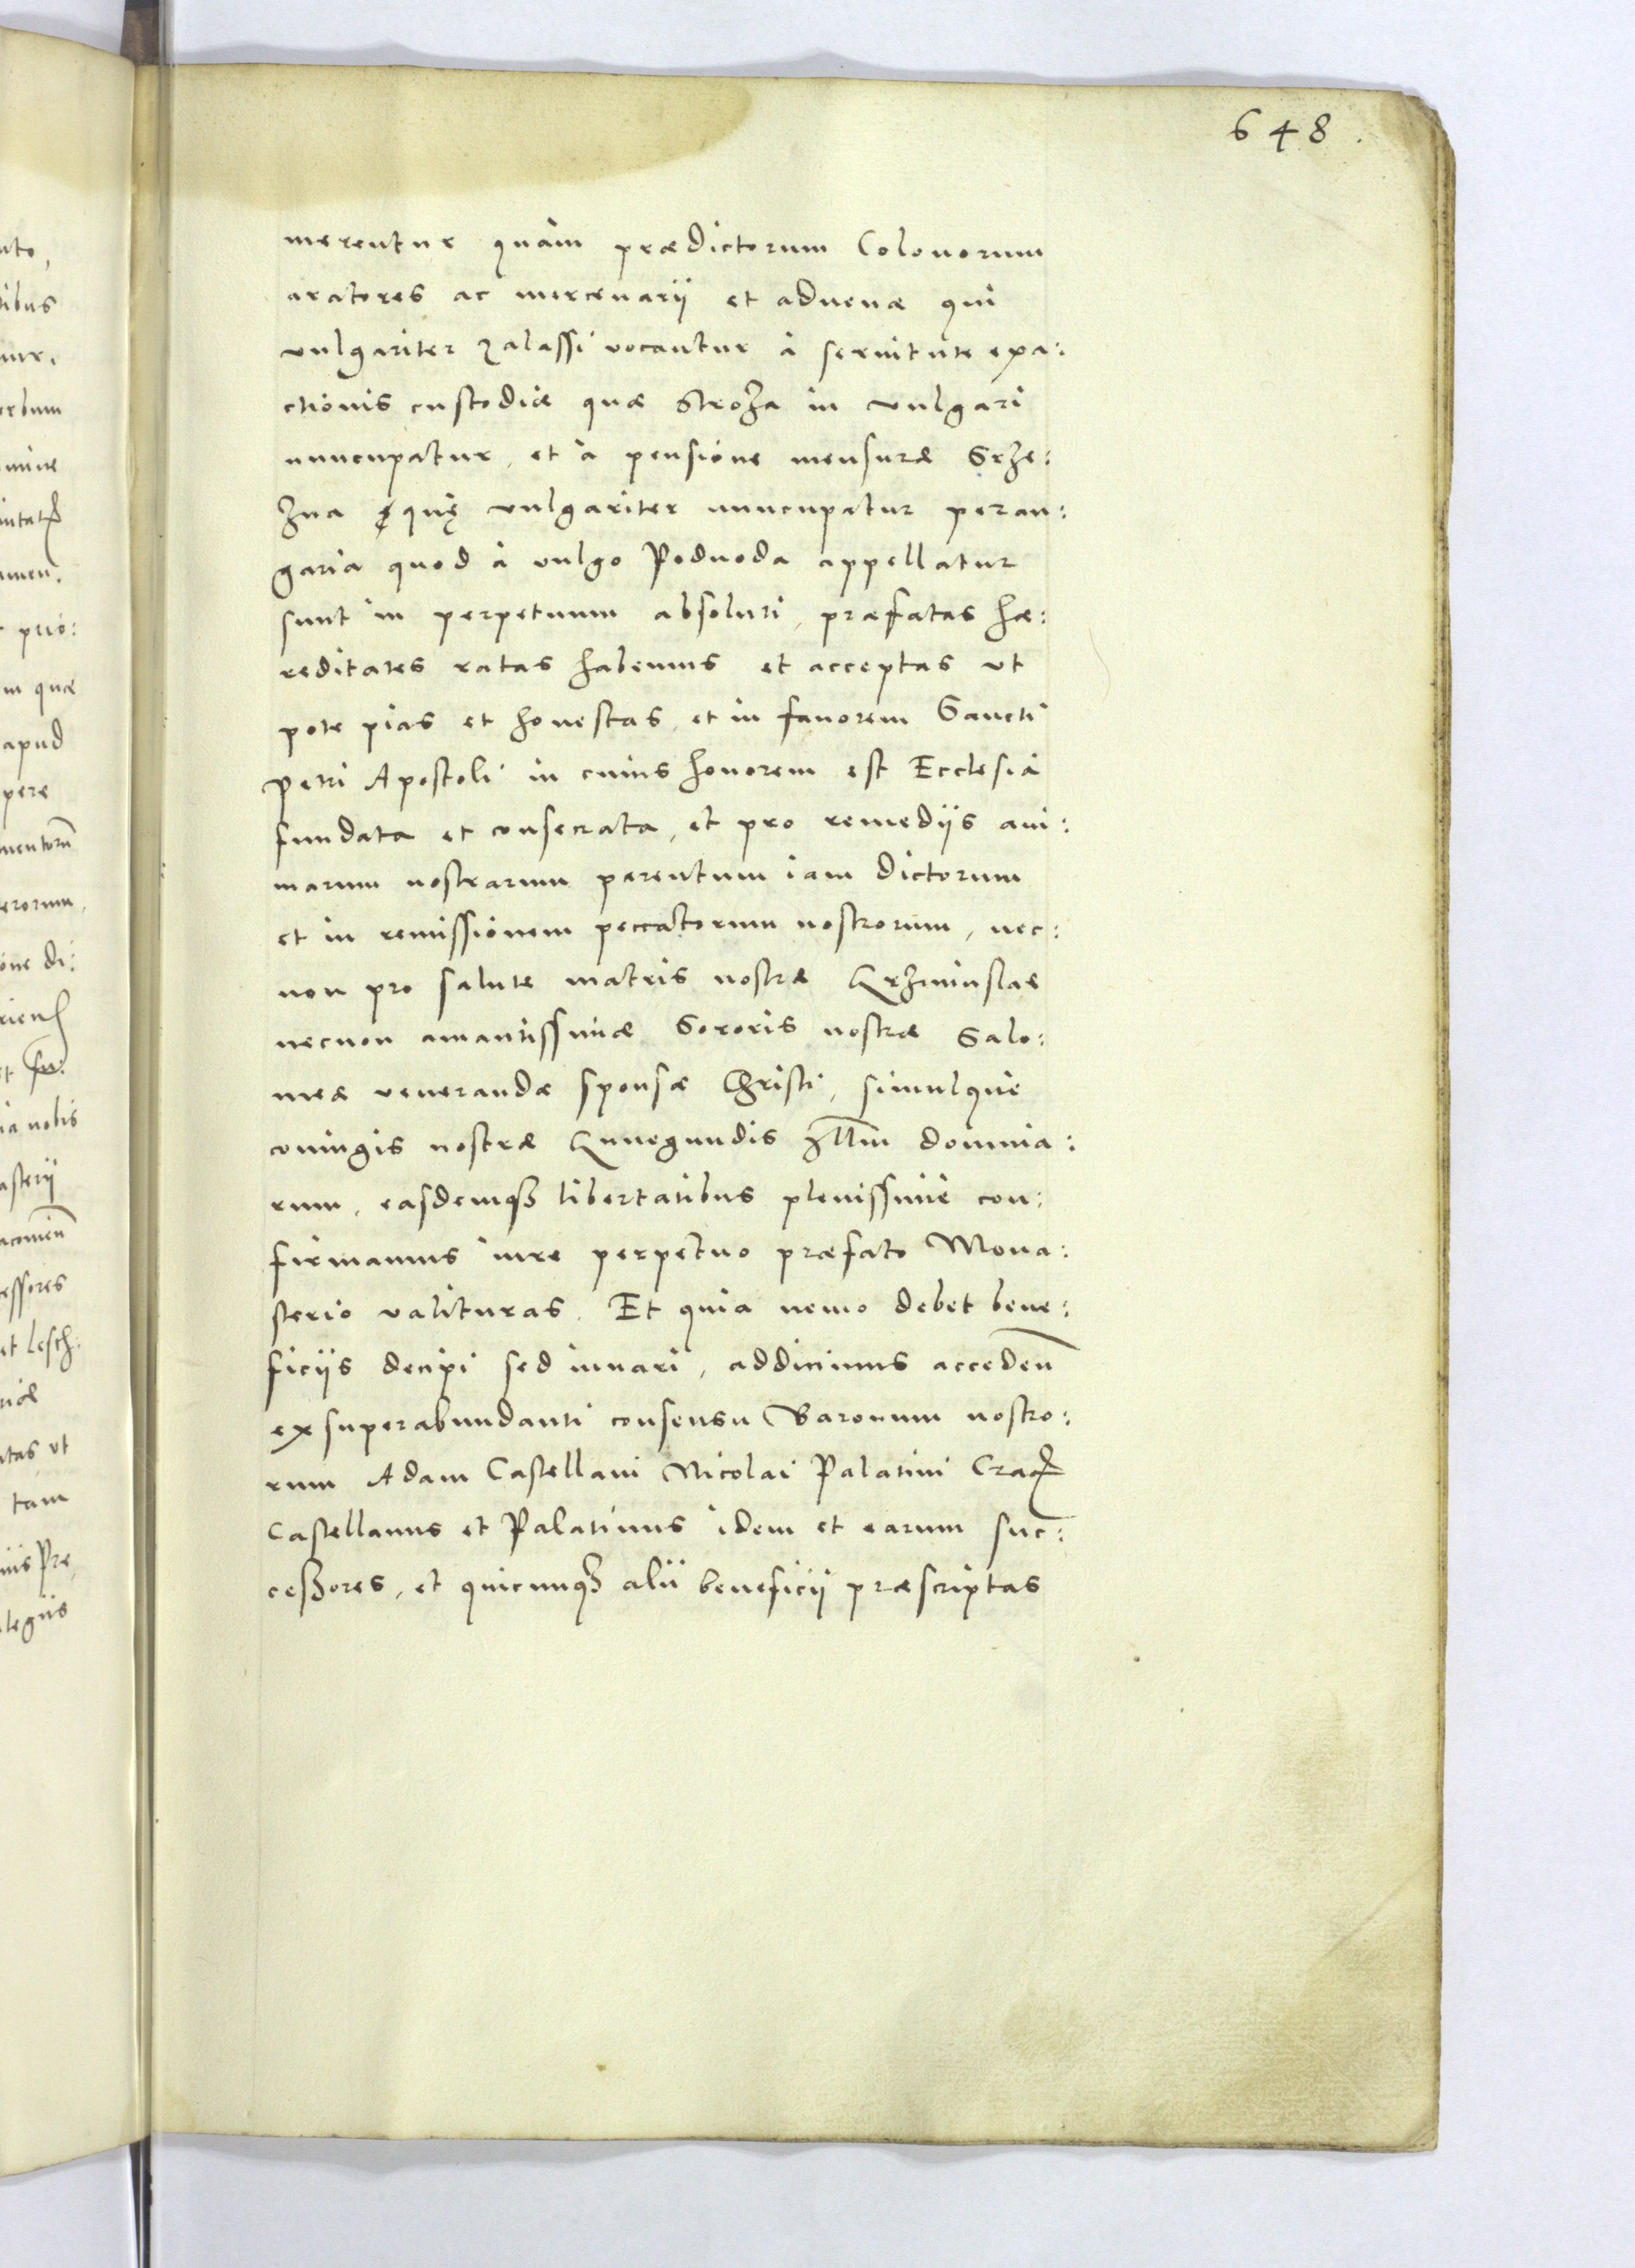 648.
merentur quàm prædictorum Colonorum
aratores ac mercenarij et aduenæ qui
vulgariter zalassi vocantur à seruitute exa:
ctionis custodiæ quæ Stroza in vulgari
nuncupatur, et à pensione mensuræ Srze:
zna quę vulgariter nuncupatur peran:
garia quod à vulgo Podvoda appellatur
sunt in perpetuum absoluti, præfatas hæ:
reditates ratas habemus et acceptas vt
pote pias et honestas, et in fauorem Sancti
Petri Apostoli in cuius honorem est Ecclesia
fundata et consecrata, et pro remedijs ani:
marum nostrarum parentum iam dictorum
et in remissionem peccatorum nostrorum, nec:
non pro salute matris nostræ Grzimislae
necnon amantissimæ Sororis nostræ Salo:
meæ venerandæ sponsæ Christi, simulque
coniugis nostræ Kunegundis Illm dominia:
rum, easdemq3 libertatibus plenissimè con:
firmamus iure perpetuo præfato Mona:
sterio valituras. Et quia nemo debet bene:
ficijs decipi sed iuuari, addicimus acceden̄
ex superabundanti consensu Baronum nostro:
rum Adam Castellani Nicolai Palatini Crac̄
Castellanus et Palatinus idem et earum suc:
ceßores, et quicunq3 alii beneficij præscriptas
nto,
tibus
apud
pere
ia nobis
asterij
essores
et Lesch:
tam